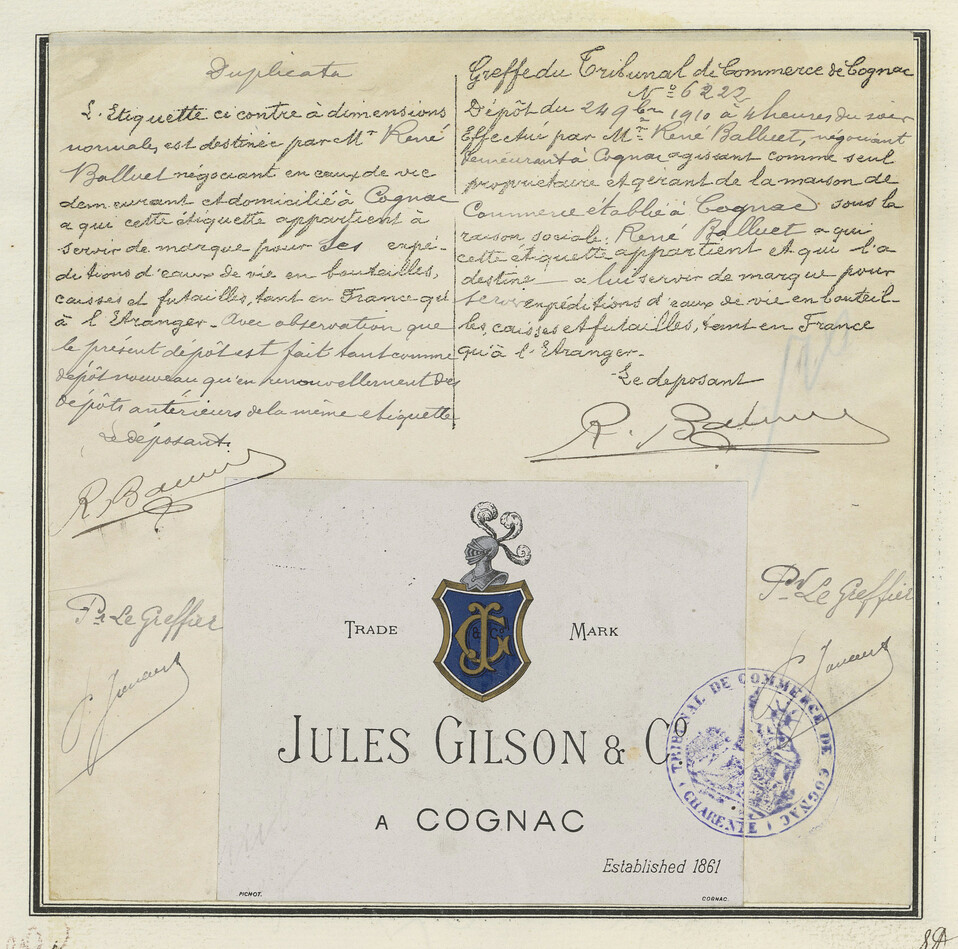 Duplicata
L'Etiquette ci contre à dimensions
normales, est destinée par Mr René
Balluet négociant en eaux de vie
demeurant et domicilié à Cognac
a qui cette étiquette appartient à
servir de marque pour ses expé-
ditions d'eaux de vie en bouteilles,
caisses et futailles, tant en France qu'
à l'Etranger - Avec observation que
le présent dépôt est fait tant comme
dépôt nouveau qu'en renouvellement des
dépôts antérieurs de la même etiquette
Le déposant.
Greffe du Tribunal de Commerce de Cognac
No 6222
Dépôt du 24 9bre 1910 à 4 heures du soir
Effectué par Mr René Balluet, négociant
demeurant à Cognac agissant comme seul
propriétaire et gérant de la maison de
Commerce établie à Cognac sous la
raison sociale: René Balluet a qui
cette étiquette appartient et qui l'a
destine a lui servir de marque pour
ses expéditions d'eaux de vie en bouteil-
les, caisses et futailles, tant en France
qu'à l'Etranger.-
Le deposant
R. Balluet
R. Balluet
Pr Le Greffier
Pr Le Greffier
TRADE MARK
J & Co G
JULES GILSON & Co
A COGNAC
Established 1861
PICHOT. COGNAC.
TRIBUNAL DE COMMERCE DE COGNAC
(CHARENTE)